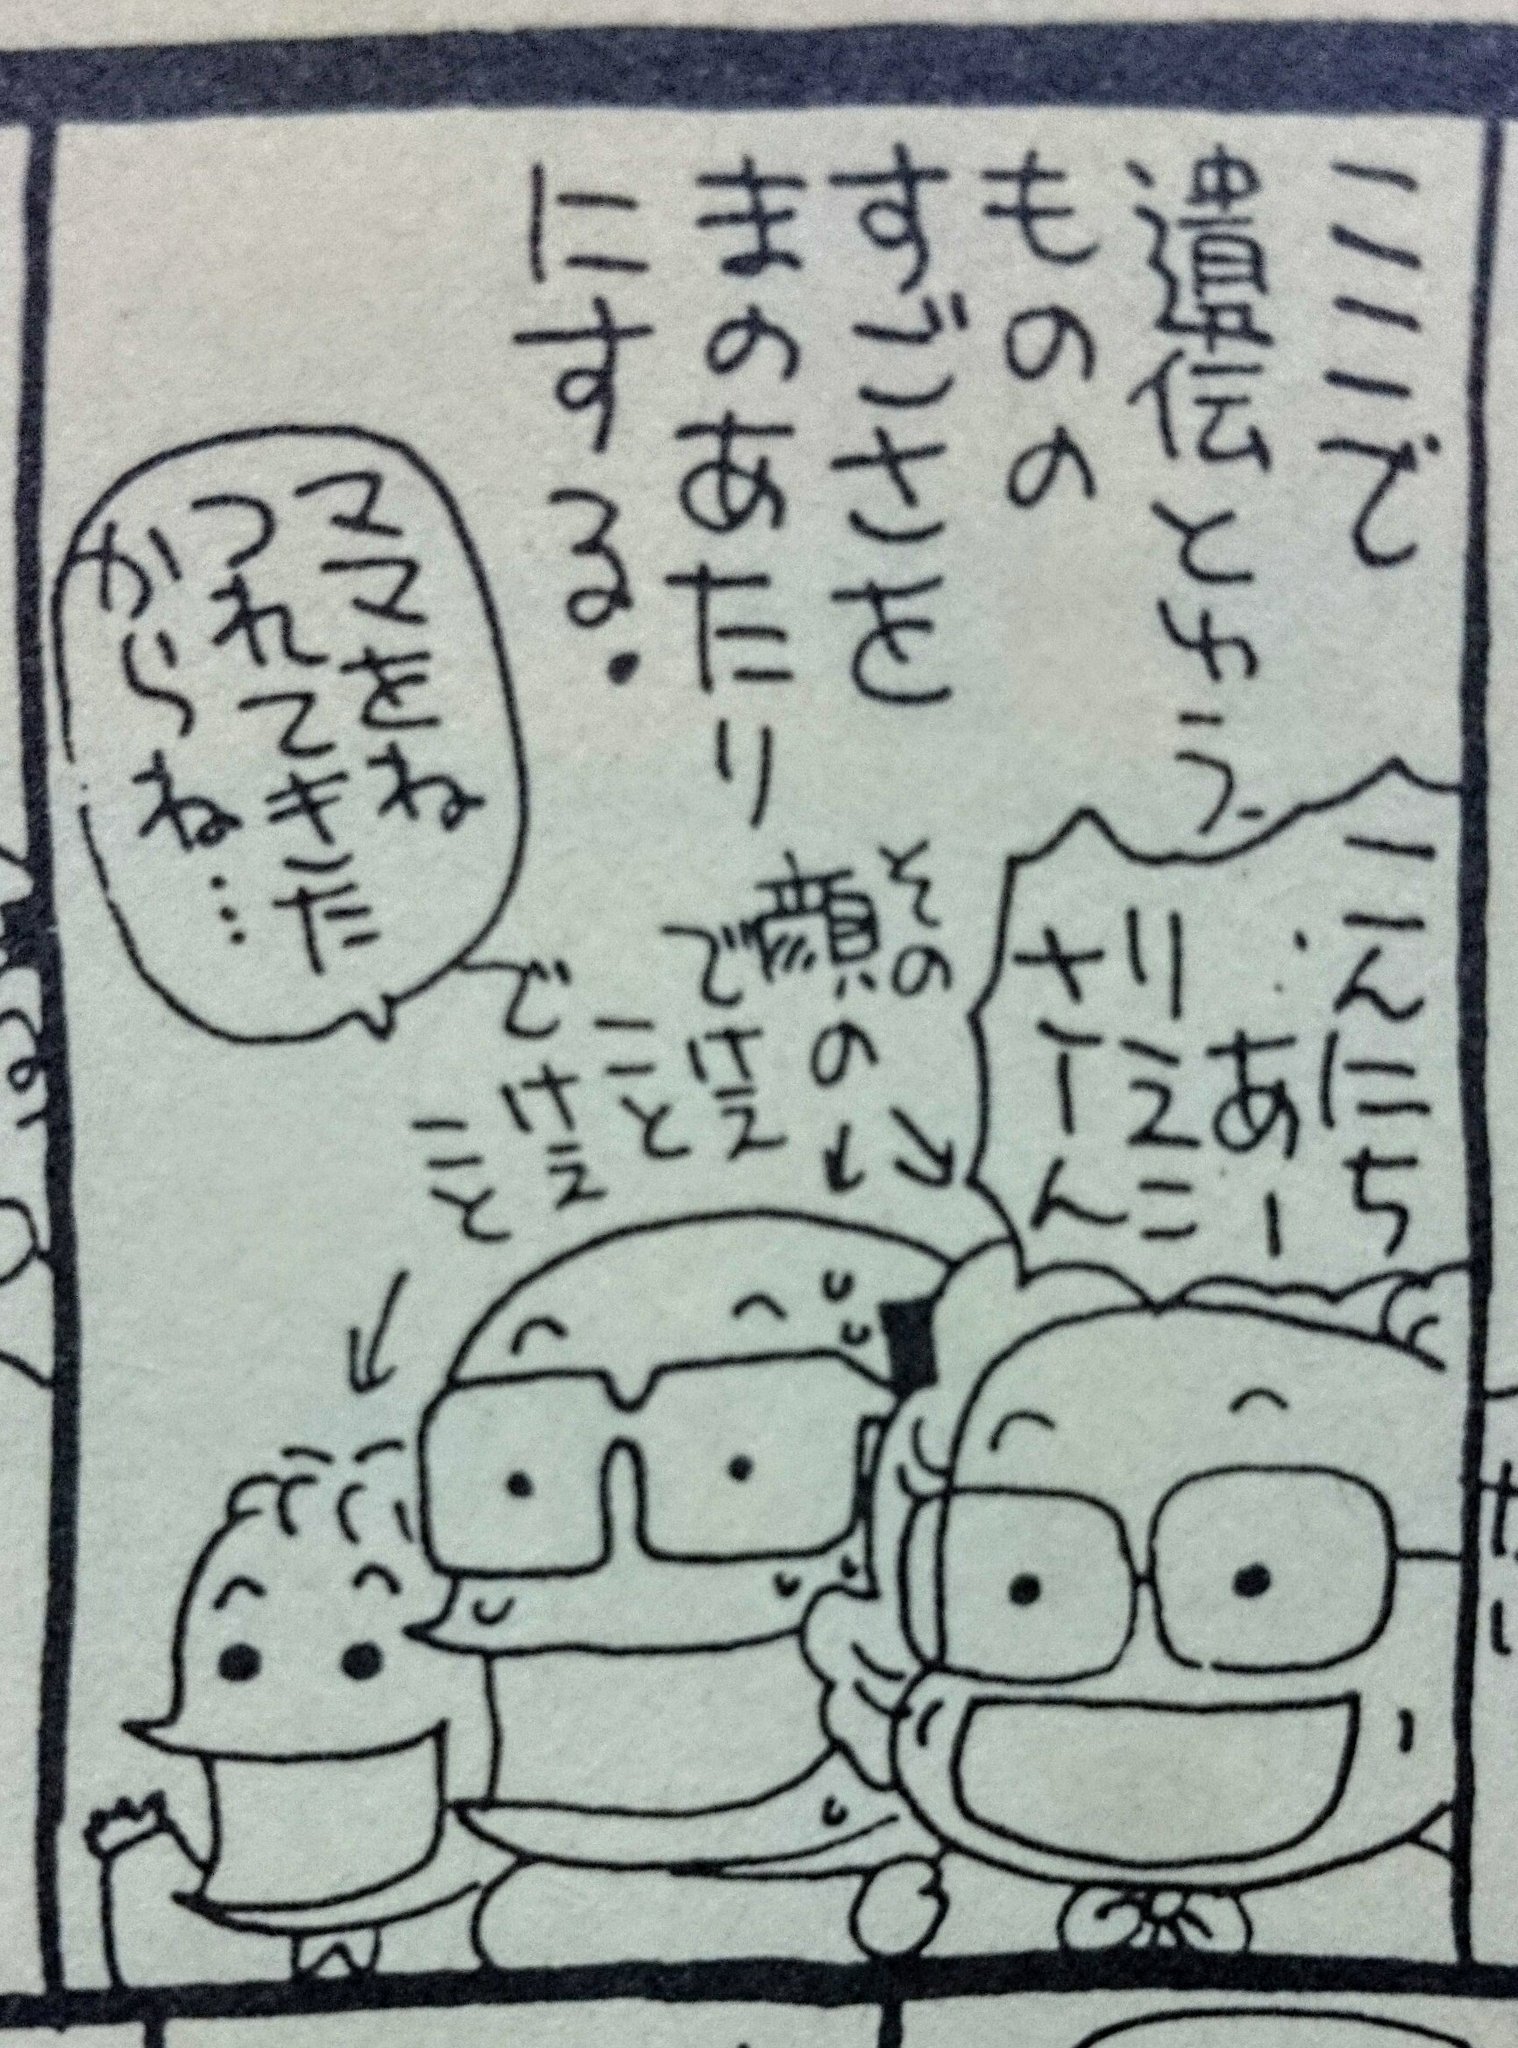 ここで
遺伝とゆう
ものの
すごさを
まのあたり
にする.
こんにち
あー
リエコ
さーん
その
顔の
でけえ
こと
でけえ
こと
ママをね
つれてきた
からね…